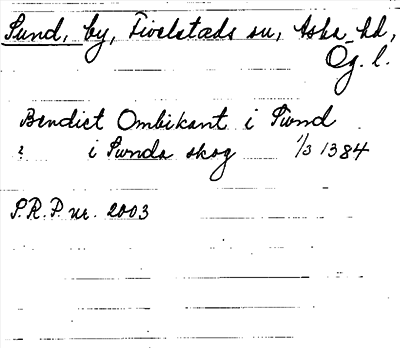 Sund, by, Tivelstads sn, Aska hd,
Ög. l.
Bendict Ombikant i Swnd
? i Swnda skog 1/3 1384
S.R.P. nr. 2003